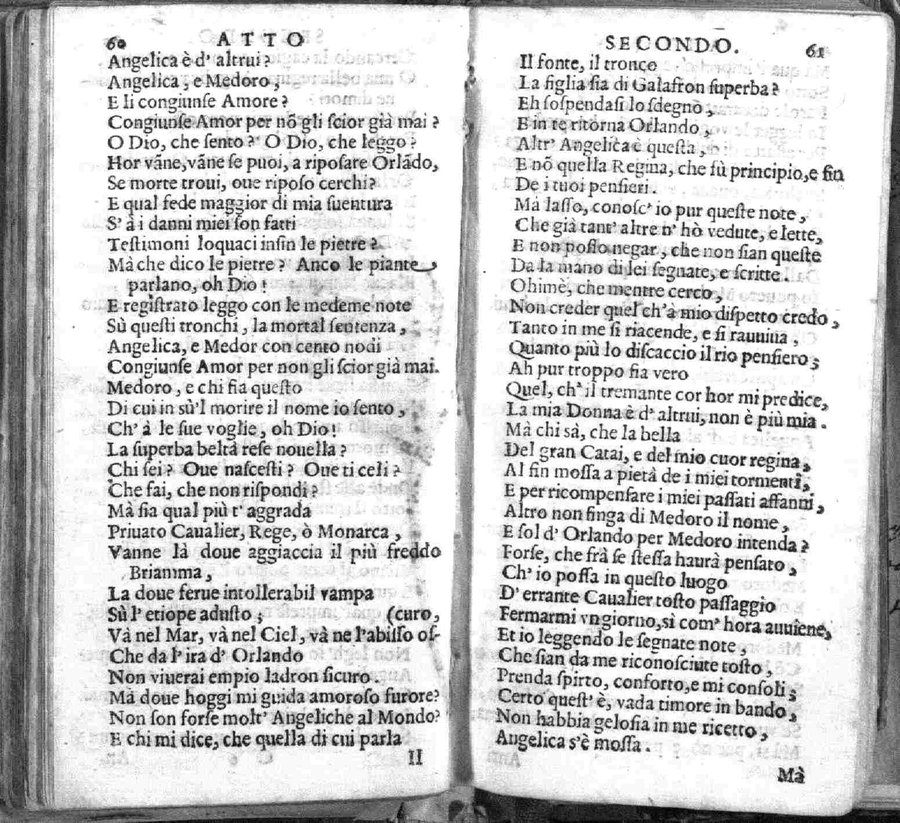 60 ATTO
Angelica è d' altrui?
Angelica, e Medoro,
E li congiunſe Amore?
Congiunſe Amor per nõ gli ſcior già mai?
O Dio, che ſento? O Dio, che leggo?
Hor vãne, vãne ſe puoi, a ripoſare Orlãdo,
Se morte troui, oue ripoſo cerchi?
E qual fede maggior di mia ſuentura
S' à i danni miei ſon fatti
Teſtimoni loquaci inſin le pietre?
Mà che dico le pietre? Anco le piante
parlano, oh Dio!
E regiſtrato leggo con le medeme note
Sù queſti tronchi, la mortal ſentenza,
Angelica, e Medor con cento nodi
Congiunſe Amor per non gli ſcior già mai.
Medoro, e chi fia queſto
Di cui in sù'l morire il nome io ſento,
Ch' à le ſue voglie, oh Dio!
La ſuperba beltà reſe nouella?
Chi ſei? Oue naſceſti? Oue ti celi?
Che fai, che non riſpondi?
Mà ſia qual più t' aggrada
Priuato Caualier, Rege, ò Monarca,
Vanne là doue aggiaccia il più freddo
Briamma,
La doue ferue intollerabil vampa
Sù l'etiope aduſto; (curo,
Và nel Mar, và nel Ciel, và ne l'abiſſo oſ-
Che da l'ira d' Orlando
Non viuerai empio ladron ſicuro.
Mà doue hoggi mi guida amoroſo furore?
Non ſon forſe molt' Angeliche al Mondo?
E chi mi dice, che quella di cui parla
Il
SECONDO. 61
Il fonte, il tronco
La figlia ſia di Galafron ſuperba?
Eh ſoſpendaſi lo ſdegno,
E in te ritorna Orlando,
Altr' Angelica è queſta,
E nõ quella Regina, che fù principio, e fin
De i tuoi penſieri.
Mà laſſo, conoſc' io pur queſte note,
Che già tant' altre n' hò vedute, e lette,
E non poſſo negar, che non ſian queſte
Da la mano di lei ſegnate, e ſcritte.
Ohimè, che mentre cerco,
Non creder quel ch'à mio diſpetto credo,
Tanto in me ſi riacende, e ſi rauuiua,
Quanto più lo diſcaccio il rio penſiero;
Ah pur troppo fia vero
Quel, ch' il tremante cor hor mi predice,
La mia Donna è d' altrui, non è più mia.
Mà chi sà, che la bella
Del gran Catai, e del mio cuor regina,
Al fin moſſa a pietà de i miei tormenti,
E per ricompenſare i miei paſſati affanni,
Altro non finga di Medoro il nome,
E ſol d' Orlando per Medoro intenda?
Forſe, che frà ſe ſteſſa haurà penſato,
Ch' io poſſa in queſto luogo
D' errante Caualier toſto paſſaggio
Fermarmi vn giorno, ſi com' hora auuiene,
Et io leggendo le ſegnate note,
Che ſian da me riconoſciute toſto,
Prenda ſpirto, conforto, e mi conſoli;
Certo queſt' è, vada timore in bando,
Non habbia geloſia in me ricetto,
Angelica s'è moſſa.
Mà